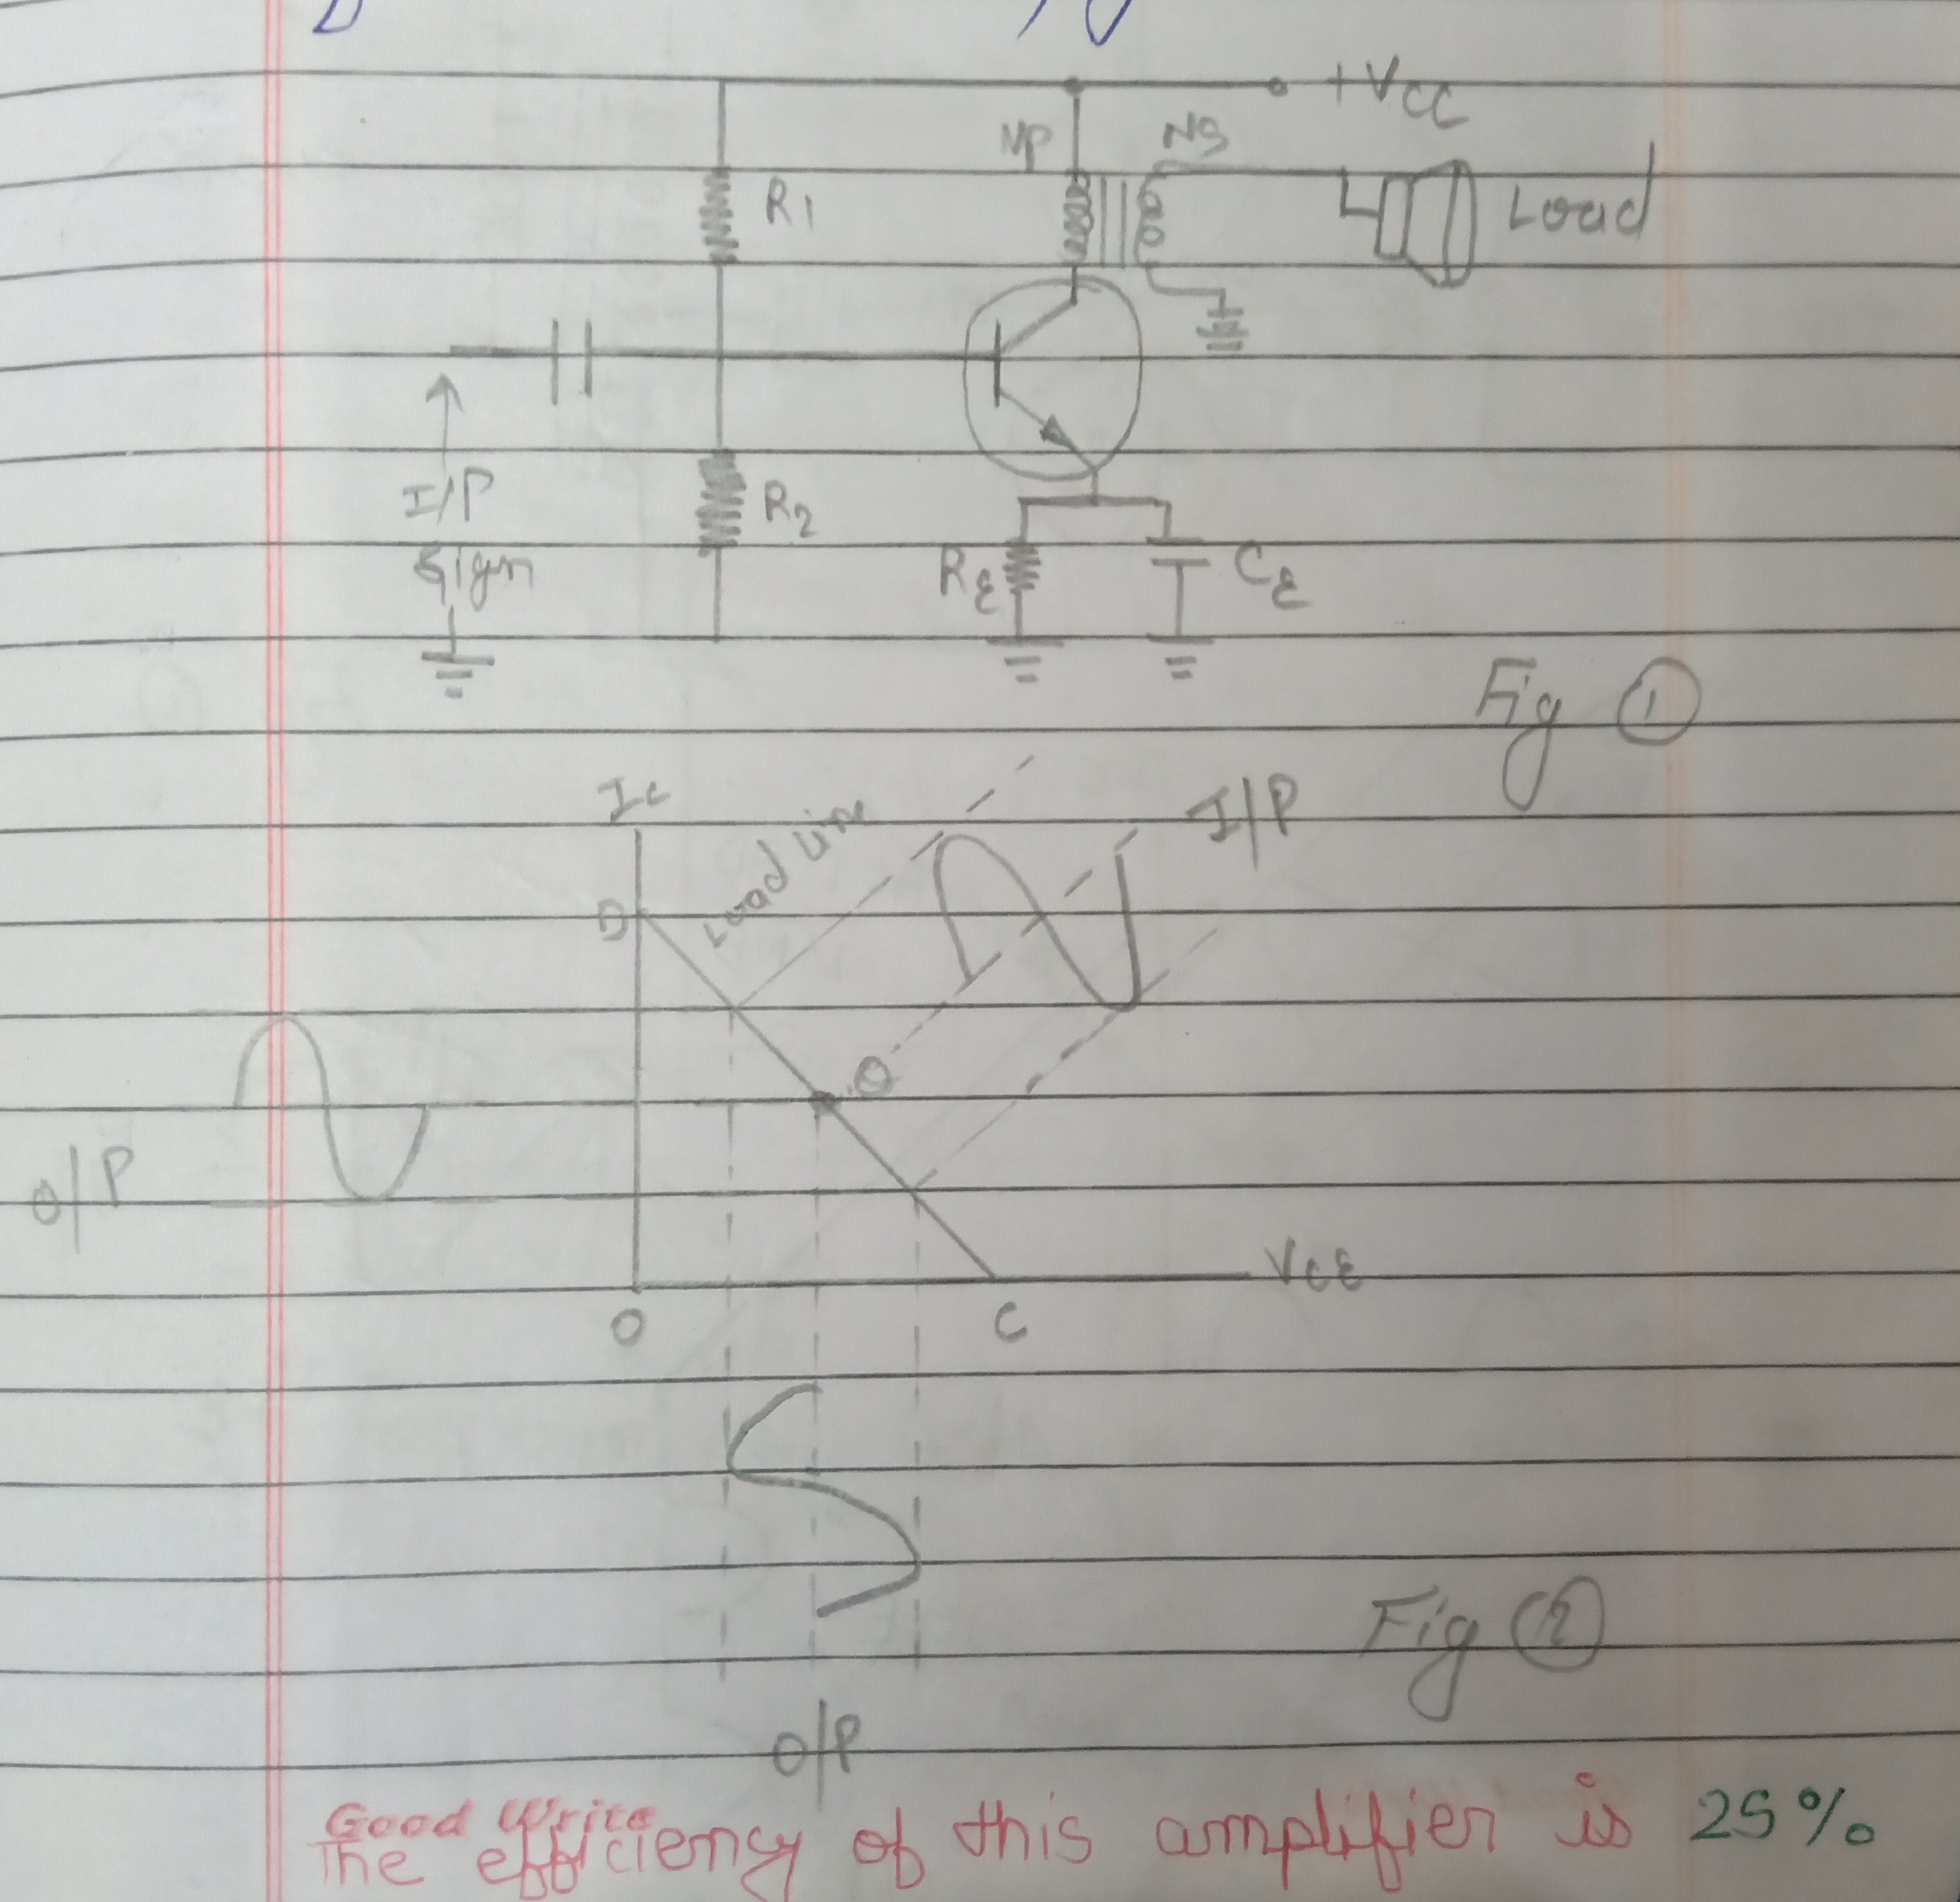 +VCC
NP NS
R1
Load
I/P
Sign
R2
RE
CE
Fig ①
Ic
Load Line
I/P
D
Q
O/P
VCE
O
C
Fig ②
O/P
Good Write
The efficiency of this amplifier is 25%